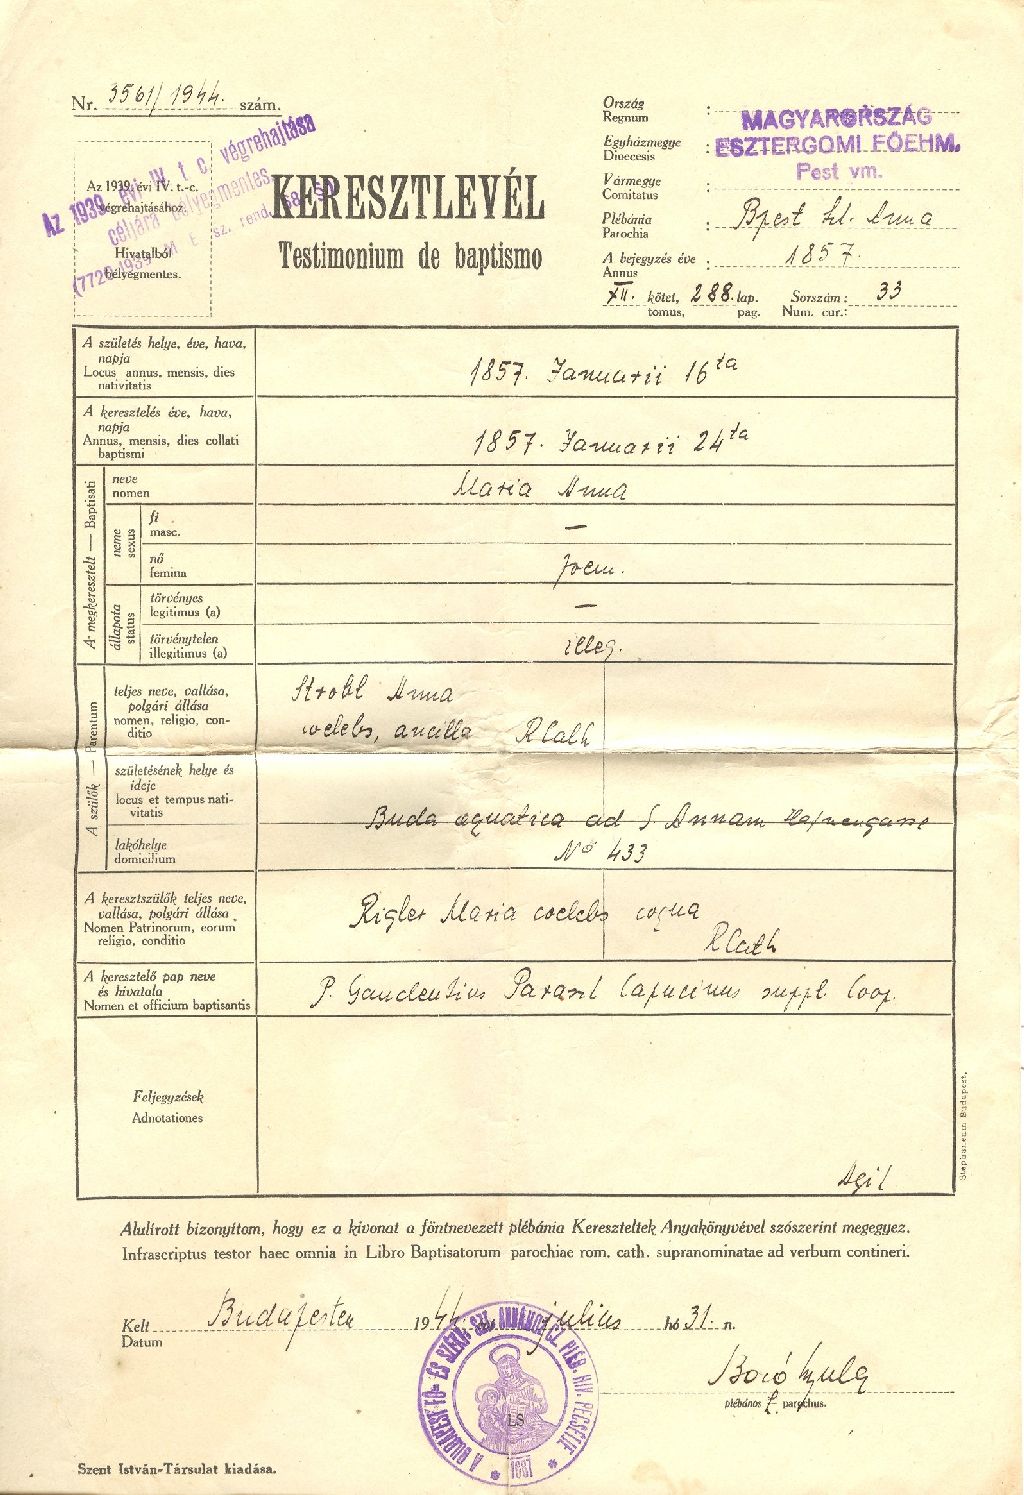 Nr. 3561/1944. szám.
Az 1939. évi IV. t.-c.
végrehajtásához
Hivatalból
bélyegmentes.
Az 1939. évi IV. t. c. végrehajtása
céljára bélyegmentes
KERESZTLEVÉL
Testimonium de baptismo
Ország
Regnum
: MAGYARORSZÁG
Egyházmegye
Dioecesis
: ESZTERGOMI FŐEHM.
Vármegye
Comitatus
: Pest vm.
Plébánia
Parochia
: Bpest Szt. Anna
A bejegyzés éve : 1857.
Annus
XII. kötet, 288. lap. Sorszám: 33
tomus, pag. Num. cur.:
A születés helye, éve, hava,
napja
Locus annus, mensis, dies
nativitatis
1857. Januarii 16ta
A keresztelés éve, hava,
napja
Annus, mensis, dies collati
baptismi
1857. Januarii 24ta
A megkeresztelt — Baptisati
neve
nomen
Maria Anna
neme
sexus
fi
masc.
—
nő
femina
foem.
állapota
status
törvényes
legitimus (a)
—
törvénytelen
illegitimus (a)
illeg.
A szülők — Parentum
teljes neve, vallása,
polgári állása
nomen, religio, con-
ditio
Strobl Anna
coelebs, ancilla RCath
születésének helye és
ideje
locus et tempus nati-
vitatis
Buda aquatica ad S Annam
lakóhelye
domicilium
No 433
A keresztszülők teljes neve,
vallása, polgári állása
Nomen Patrinorum, eorum
religio, conditio
Rigler Maria coelebs coqua
RCath
A keresztelő pap neve
és hivatala
Nomen et officium baptisantis
P. Gaudentius Capucinus suppl. Coop.
Feljegyzések
Adnotationes
Stephaneum Budapest.
Alulírott bizonyítom, hogy ez a kivonat a föntnevezett plébánia Kereszteltek Anyakönyvével szószerint megegyez.
Infrascriptus testor haec omnia in Libro Baptisatorum parochiae rom. cath. supranominatae ad verbum contineri.
Kelt Budapesten 1944. évi július hó 31. n.
Datum
plébános parochus.
LS
1887
Szent István-Társulat kiadása.